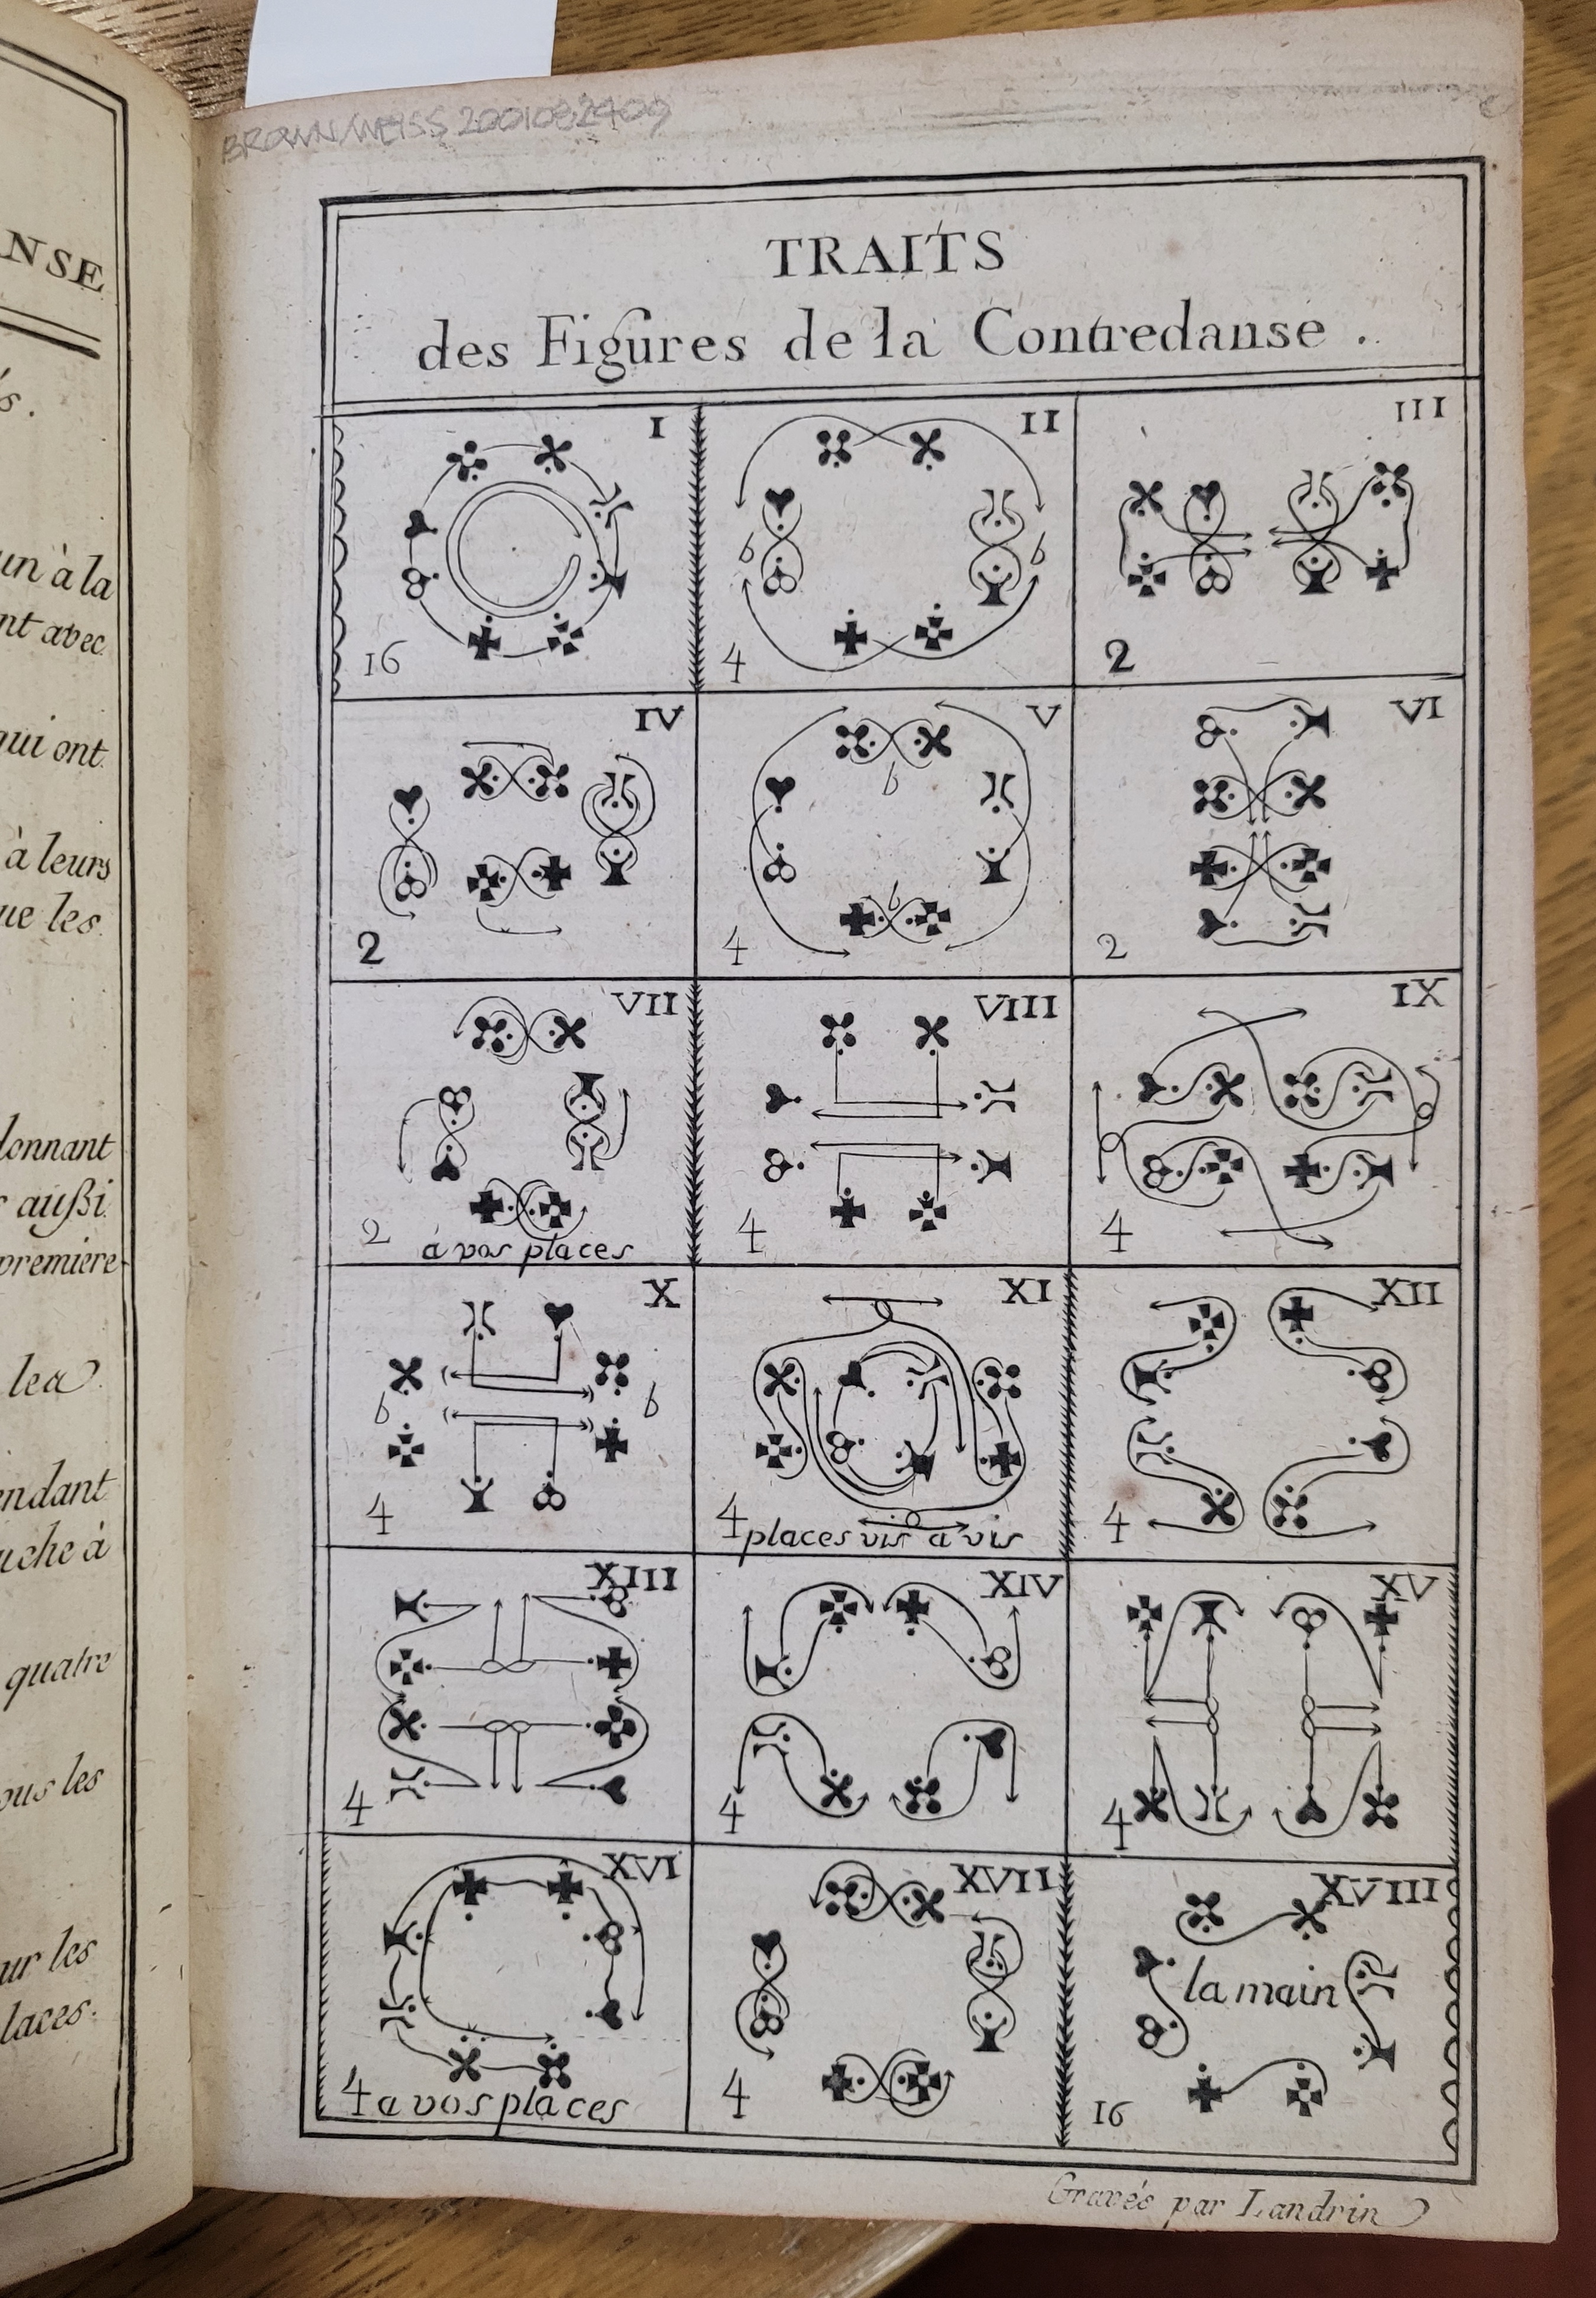 BROWN/WEISS 2001082409
NSE
s.
un à la
nt avec
qui ont
à leurs
ue les
donnant
aussi
premiere
les
endant
uche à
quatre
ous les
ur les
laces.
TRAITS
des Figures de la Contredanse.
I
16
II
b b
4
III
2
IV
2
V
b
b
4
VI
2
VII
2 à vos places
VIII
4
IX
4
X
b b
4
XI
4 places vis a vis
XII
4
XIII
4
XIV
4
XV
4
XVI
4 a vos places
XVII
4
XVIII
la main
16
Gravés par Landrin